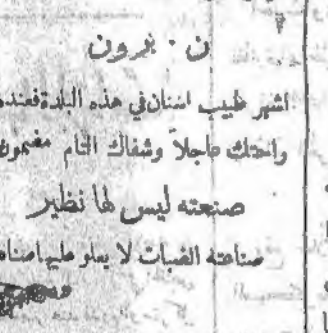 ن . برون
اشهر طبيب اسنان في هذه البلدة فعنده
عاجلاً وشفاك التام مضمون
صنعته ليس لها نظير
صناعته الثبات لا يعلو عليها